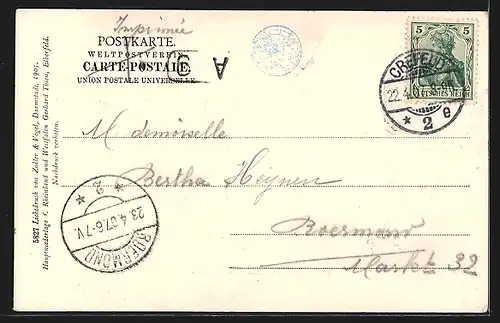 Imprimée
POSTKARTE.
WELTPOSTVEREIN
CARTE POSTALE.
UNION POSTALE UNIVERSELLE.
A
5
5
DEUTSCHES REICH
CREFELD
22.4.
* 2 e
Mademoiselle
Bertha Heynen
Roermond
Markt 32
ROERMOND
23.4.07.6-7V.
* 2 *
5827 Lichtdruck von Zedler & Vogel, Darmstadt. 1905.
Hauptniederlage f. Rheinland und Westfalen Gerhard Thien, Elberfeld.
Nachdruck verboten.